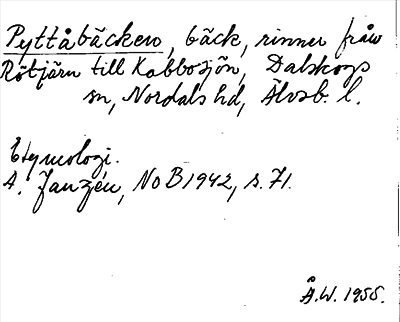 Pyttåbäcken, bäck, rinner från
Rötjärn till Kabbosjön, Dalskogs
sn, Nordals hd, Älvsb. l.
Etymologi.
A. Janzén, NoB 1942, s. 71.
Å.W. 1955.